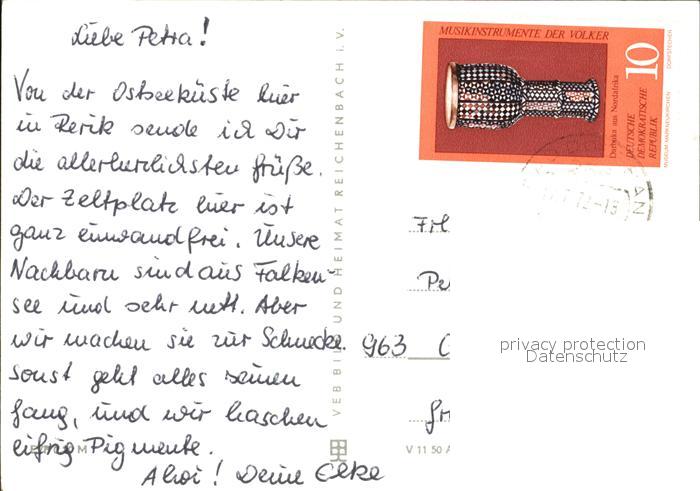 Liebe Petra!
Von der Ostseeküste hier
in Rerik sende ich Dir
die allerherzlichsten Grüße.
Der Zeltplatz hier ist
ganz einwandfrei. Unsere
Nachbarn sind aus Falken-
see und sehr nett. Aber
wir machen sie zur Schnecke.
Sonst geht alles seinen
Gang, und wir haschen
eifrig Pigmente.
Ahoi! Deine Elke
VEB BILD UND HEIMAT REICHENBACH i. V.
V 11 50 A
MUSIKINSTRUMENTE DER VÖLKER
10
Darbuka aus Nordafrika
DEUTSCHE
DEMOKRATISCHE
REPUBLIK
MUSEUM MARKNEUKIRCHEN
Frl
Pe
963
privacy protection
Datenschutz